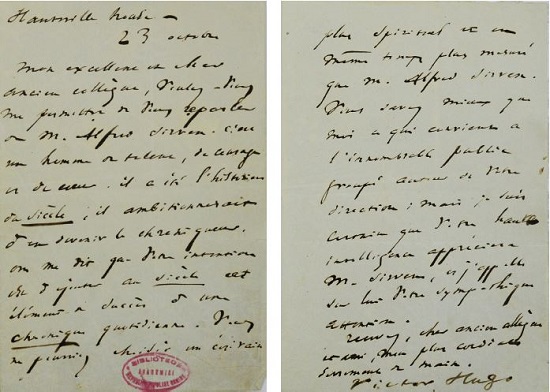 Hauteville house –
23 octobre
Mon excellent et cher
ancien collègue, voulez-vous
me permettre de vous reparler
de M. Alfred Sirven. C'est
un homme de talent, de courage
et de cœur. il a été l'historien
du Siècle; il ambitionnerait
d'en devenir le chroniqueur.
on me dit que votre intention
est d'ajouter au Siècle cet
élément de succès d'une
chronique quotidienne. Vous
ne pourriez choisir un écrivain
BIBLIOTECA
ACADEMIEI
plus spirituel et en
même temps plus mesuré
que M. Alfred Sirven.
Vous savez mieux que
moi ce qui convient à
l'innombrable public
groupé autour de votre
direction; mais je suis
convaincu que votre haute
intelligence appréciera
M. Sirven, et j'appelle
sur lui votre sympathique
attention.
recevez, cher ancien collègue
et ami, mon plus cordial
serrement de main.
Victor Hugo